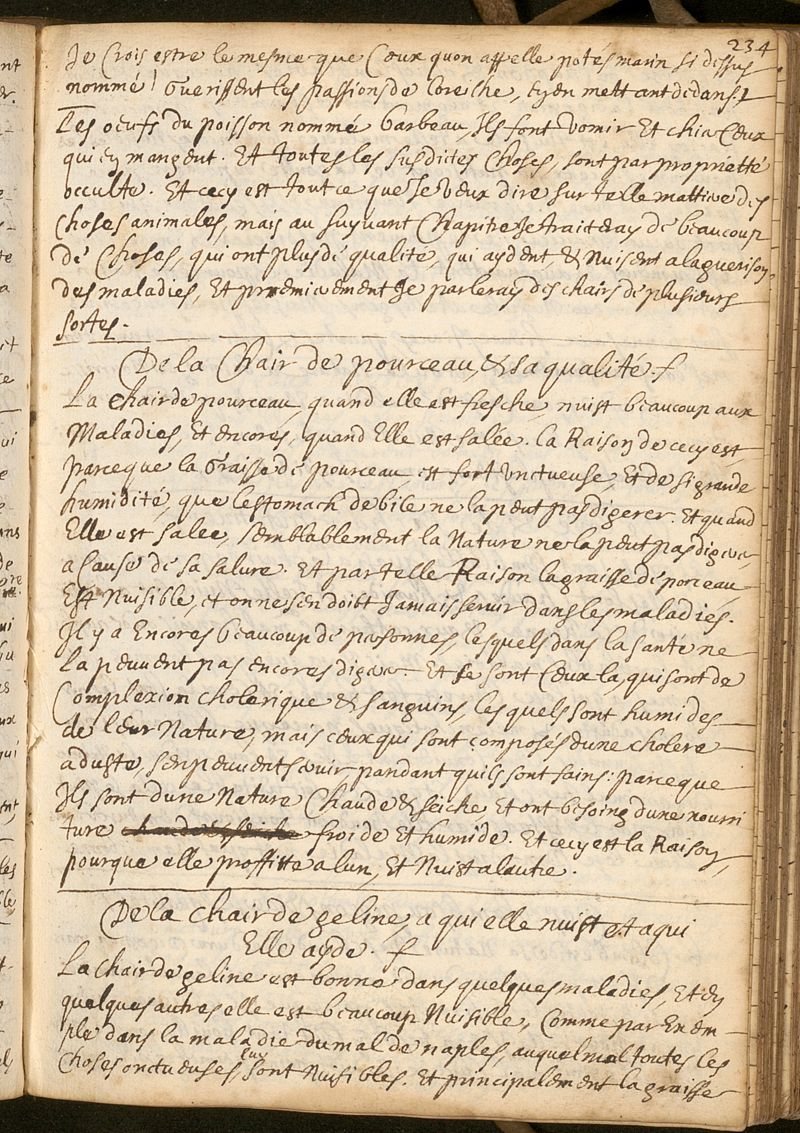 234
Je Crois estre le mesme que Ceux quon appelle potés marin si dessus
nommé! Guerissent les passions de loreche, Ey en mettant dedans!
Les oeufs du poisson nommé barbeau, Ils font vomir Et chia Ceux
qui Ey mangent. Et toutes les susdictes Choses, sont par proprietté
occulte. Et cecy est tout ce que Je veux dire sur telle mattiere des
choses animales, mais au suyvant Chapitre Je traiteray de beaucoup
de Choses, qui ont plus de qualité, qui aydent, & Nuisent a la guerison
des maladies, Et premierement Je parleray des chairs de plusieurs
sortes.
De la Chair de pourceau, & sa qualité.
La chair de pourceau, quand elle est fresche, nuist beaucoup aux
Maladies, Et encores, quand Elle est salée. la Raison de cecy est
parceque la Graisse de pourceau est fort Unctueuse, Et de si grande
humidité, que lestomach debile ne la peut pas digerer. Et quand
Elle est salée, semblablement la Nature ne la peut pas digerer
a Cause de sa salure. Et par telle Raison la graisse de porceau
Est Nuisible, et on ne sen doibt Jamais servir dans les maladies.
Il y a Encores beaucoup de personnes, lesquels dans la santé ne
la peuvent pas encores digerer. Et se sont Ceux la, qui sont de
Complexion cholerique & sanguins, lesquels sont humides
de leur Nature, mais ceux qui sont composés dune cholere
aduste, sen peuvent servir pandant quils sont sains: parceque
Ils sont dune Nature Chaude & seiche, Et ont besoing dune nourri
ture chaude & seiche froide Et humide. Et cecy est la Raison,
pourquoy elle proffitte a lun, Et Nuist a lautre.
De la chair de geline, a qui elle nuist et a qui
Elle ayde.
La Chair de geline est bonne dans quelques maladies, Et Ey
quelques autres elle est beaucoup Nuisible, Comme par Exem-
ple dans la maladie du mal de naples, auquel mal toutes les
Choses onctueuses, luy sont Nuisibles. Et principalement la graisse